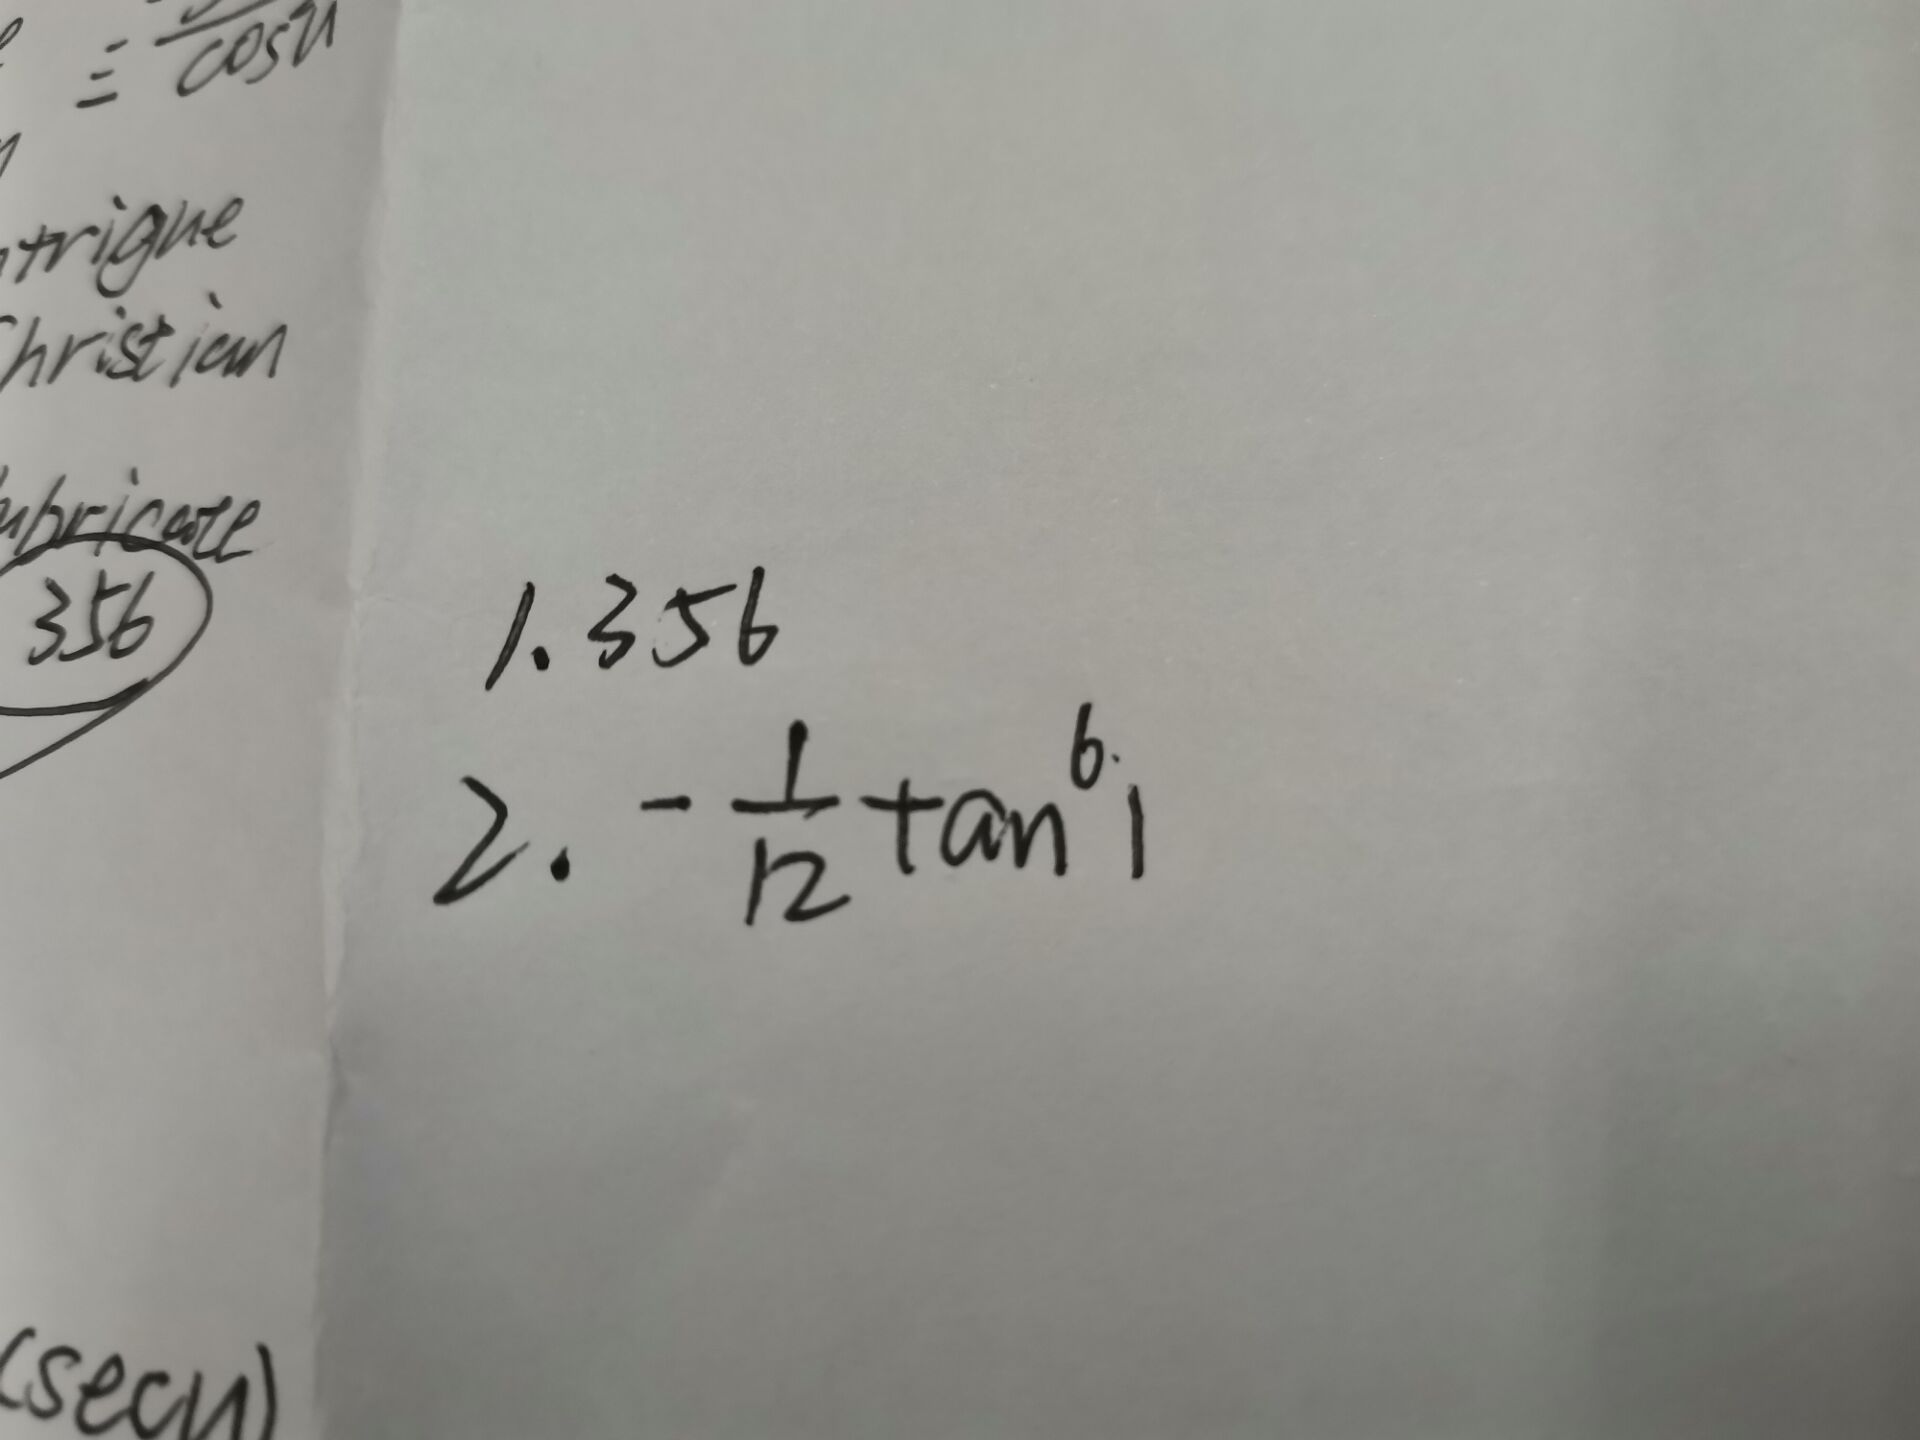 = /cosu
trigue
Christian
lubricate
356
(secu)
1. 356
2. -1/12 tan^6 1